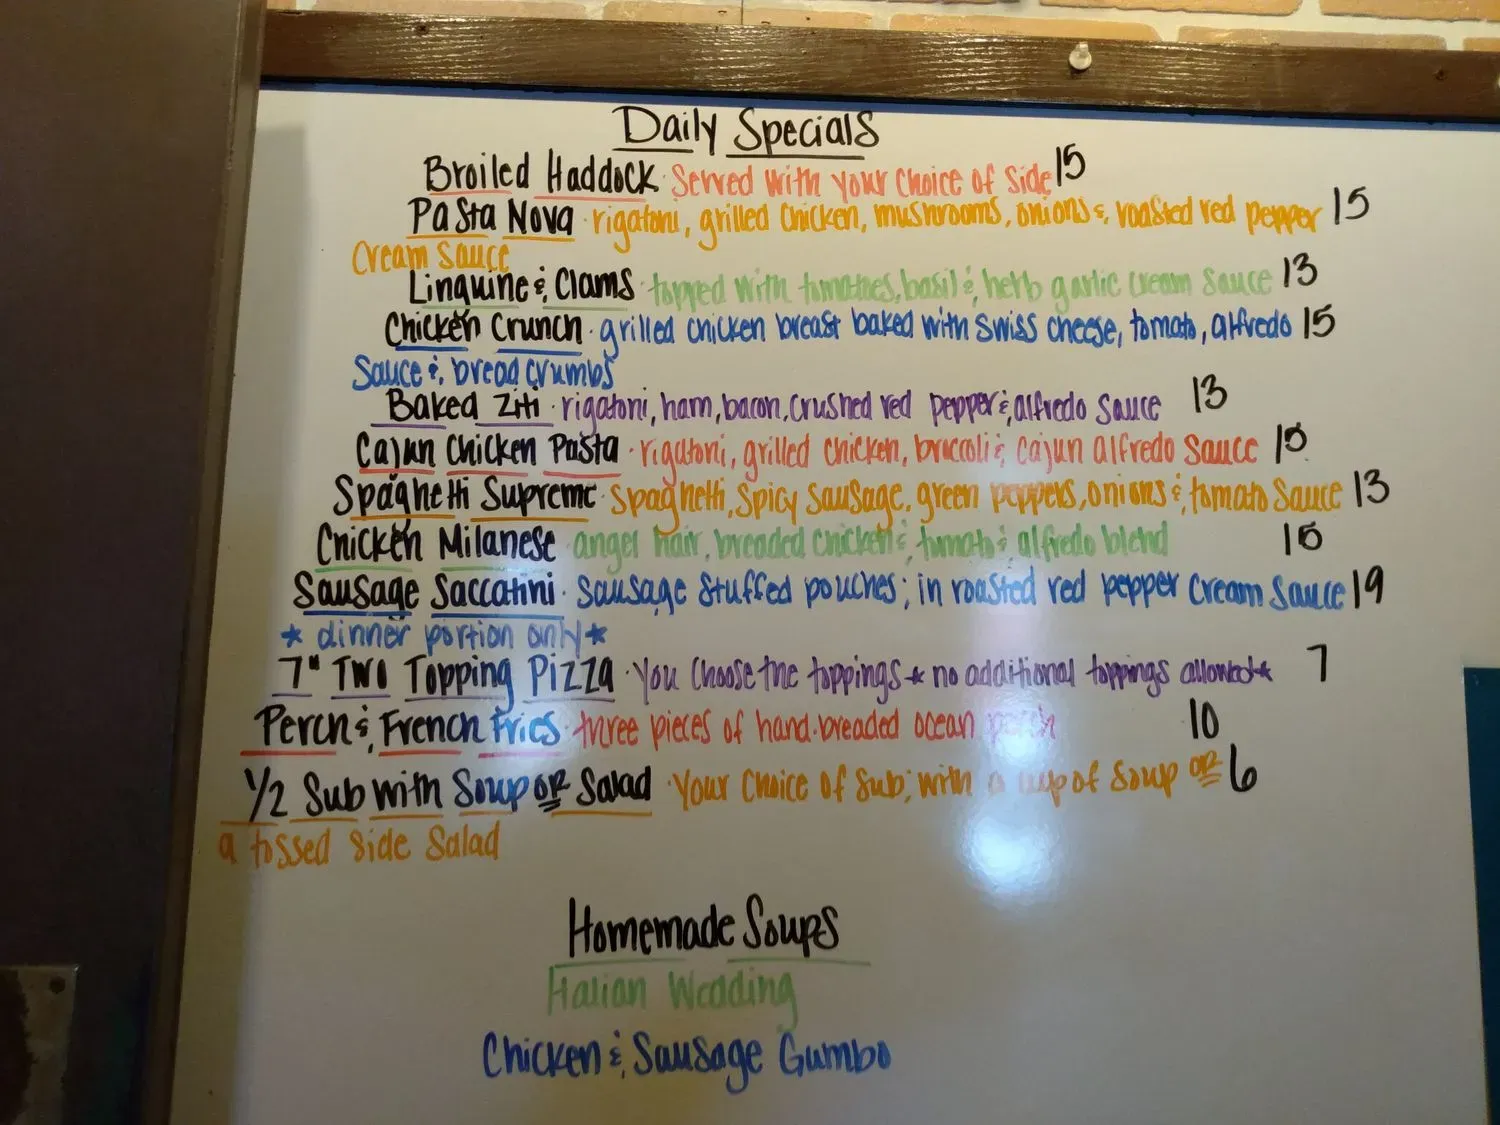 Daily Specials
Broiled Haddock · Served with your choice of side 15
Pasta Nova · rigatoni, grilled chicken, mushrooms, onions & roasted red pepper 15
cream sauce
Linguine & Clams · topped with tomatoes, basil & herb garlic cream sauce 13
Chicken Crunch · grilled chicken breast baked with swiss cheese, tomato, alfredo 15
sauce & bread crumbs
Baked Ziti · rigatoni, ham, bacon, crushed red pepper & alfredo sauce 13
Cajun Chicken Pasta · rigatoni, grilled chicken, broccoli & cajun alfredo sauce 15
Spaghetti Supreme · spaghetti, spicy sausage, green peppers, onions & tomato sauce 13
Chicken Milanese · angel hair, breaded chicken & tomato & alfredo blend 15
Sausage Saccatini · sausage stuffed pouches; in roasted red pepper cream sauce 19
* dinner portion only *
7" Two Topping Pizza · You choose the toppings * no additional toppings allowed * 7
Perch & French Fries · three pieces of hand-breaded ocean perch 10
1/2 Sub with Soup or Salad · Your choice of sub; with a cup of soup or 6
a tossed side salad
Homemade Soups
Italian Wedding
Chicken & Sausage Gumbo